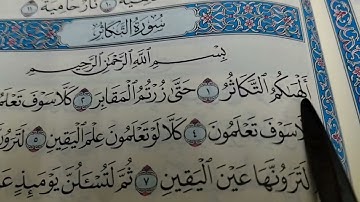 نَارٌ حَامِيَةٌ ١١
سُورَةُ التَّكَاثُرِ
بِسْمِ اللَّهِ الرَّحْمَٰنِ الرَّحِيمِ
أَلْهَىٰكُمُ التَّكَاثُرُ ١ حَتَّىٰ زُرْتُمُ الْمَقَابِرَ ٢ كَلَّا سَوْفَ تَعْلَمُ
سَوْفَ تَعْلَمُونَ ٤ كَلَّا لَوْ تَعْلَمُونَ عِلْمَ الْيَقِينِ ٥ لَتَرَوُ
لَتَرَوُنَّهَا عَيْنَ الْيَقِينِ ٧ ثُمَّ لَتُسْأَلُنَّ يَوْمَئِذٍ عَ